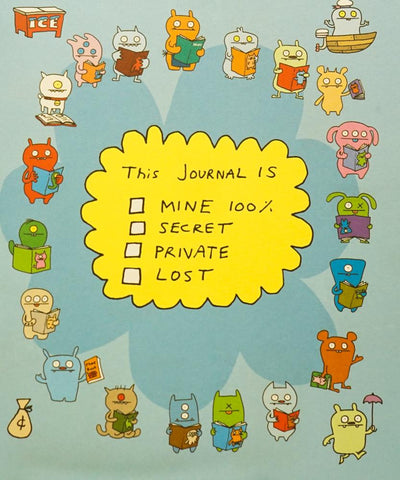 ICE
This JOURNAL IS
MINE 100%
SECRET
PRIVATE
LOST
¢